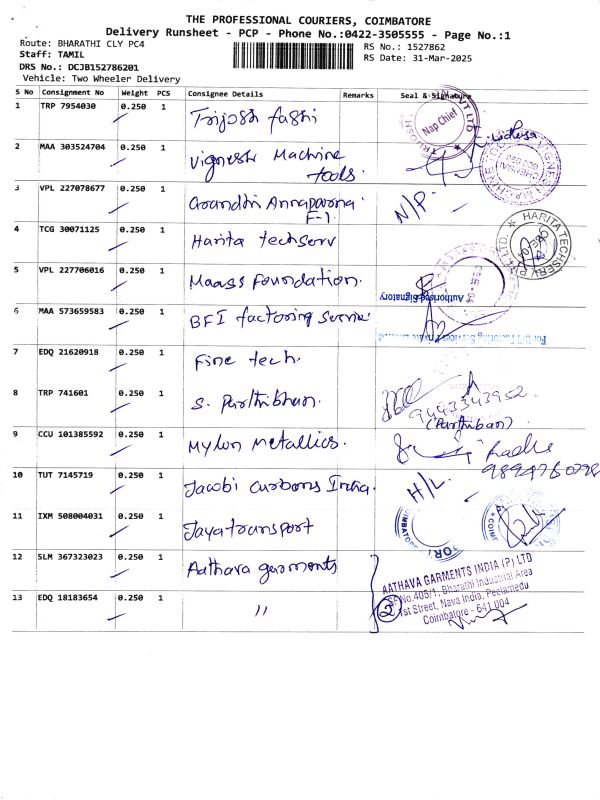 THE PROFESSIONAL COURIERS, COIMBATORE
Delivery Runsheet - PCP - Phone No.:0422-3505555 - Page No.:1
Route: BHARATHI CLY PC4
RS No.: 1527862
Staff: TAMIL
RS Date: 31-Mar-2025
DRS No.: DCJB152786201
Vehicle: Two Wheeler Delivery
S No Consignment No Weight PCS Consignee Details Remarks Seal & Signature
1 TRP 7954030 0.250 1 Trijosh fashi
2 MAA 303524704 0.250 1 Vignesh Machine
tools.
3 VPL 227078677 0.250 1 Arundhi Annapurna N/P
F-1
4 TCG 30071125 0.250 1 Harita techserv
HARITA TECHSERV PVT LTD.
5 VPL 227706016 0.250 1 Maass Foundation.
Authorised Signatory
6 MAA 573659583 0.250 1 BFI factoring service
7 EDQ 21620918 0.250 1 Fine tech.
8 TRP 741601 0.250 1 S. Parthiban. 9443343952
(Parthiban)
9 CCU 101385592 0.250 1 Mylon Metallics. Radha
9894760798
10 TUT 7145719 0.250 1 Jacobi Carbons India. H/L.
11 IXM 508004031 0.250 1 Jaya transport
12 SLM 367323023 0.250 1 Aathava garments
AATHAVA GARMENTS INDIA (P) LTD
S.F.No.405/1, Bharathi Industrial Area
1st Street, Nava India, Peelamedu
Coimbatore - 641 004
13 EDQ 18183654 0.250 1 " 2